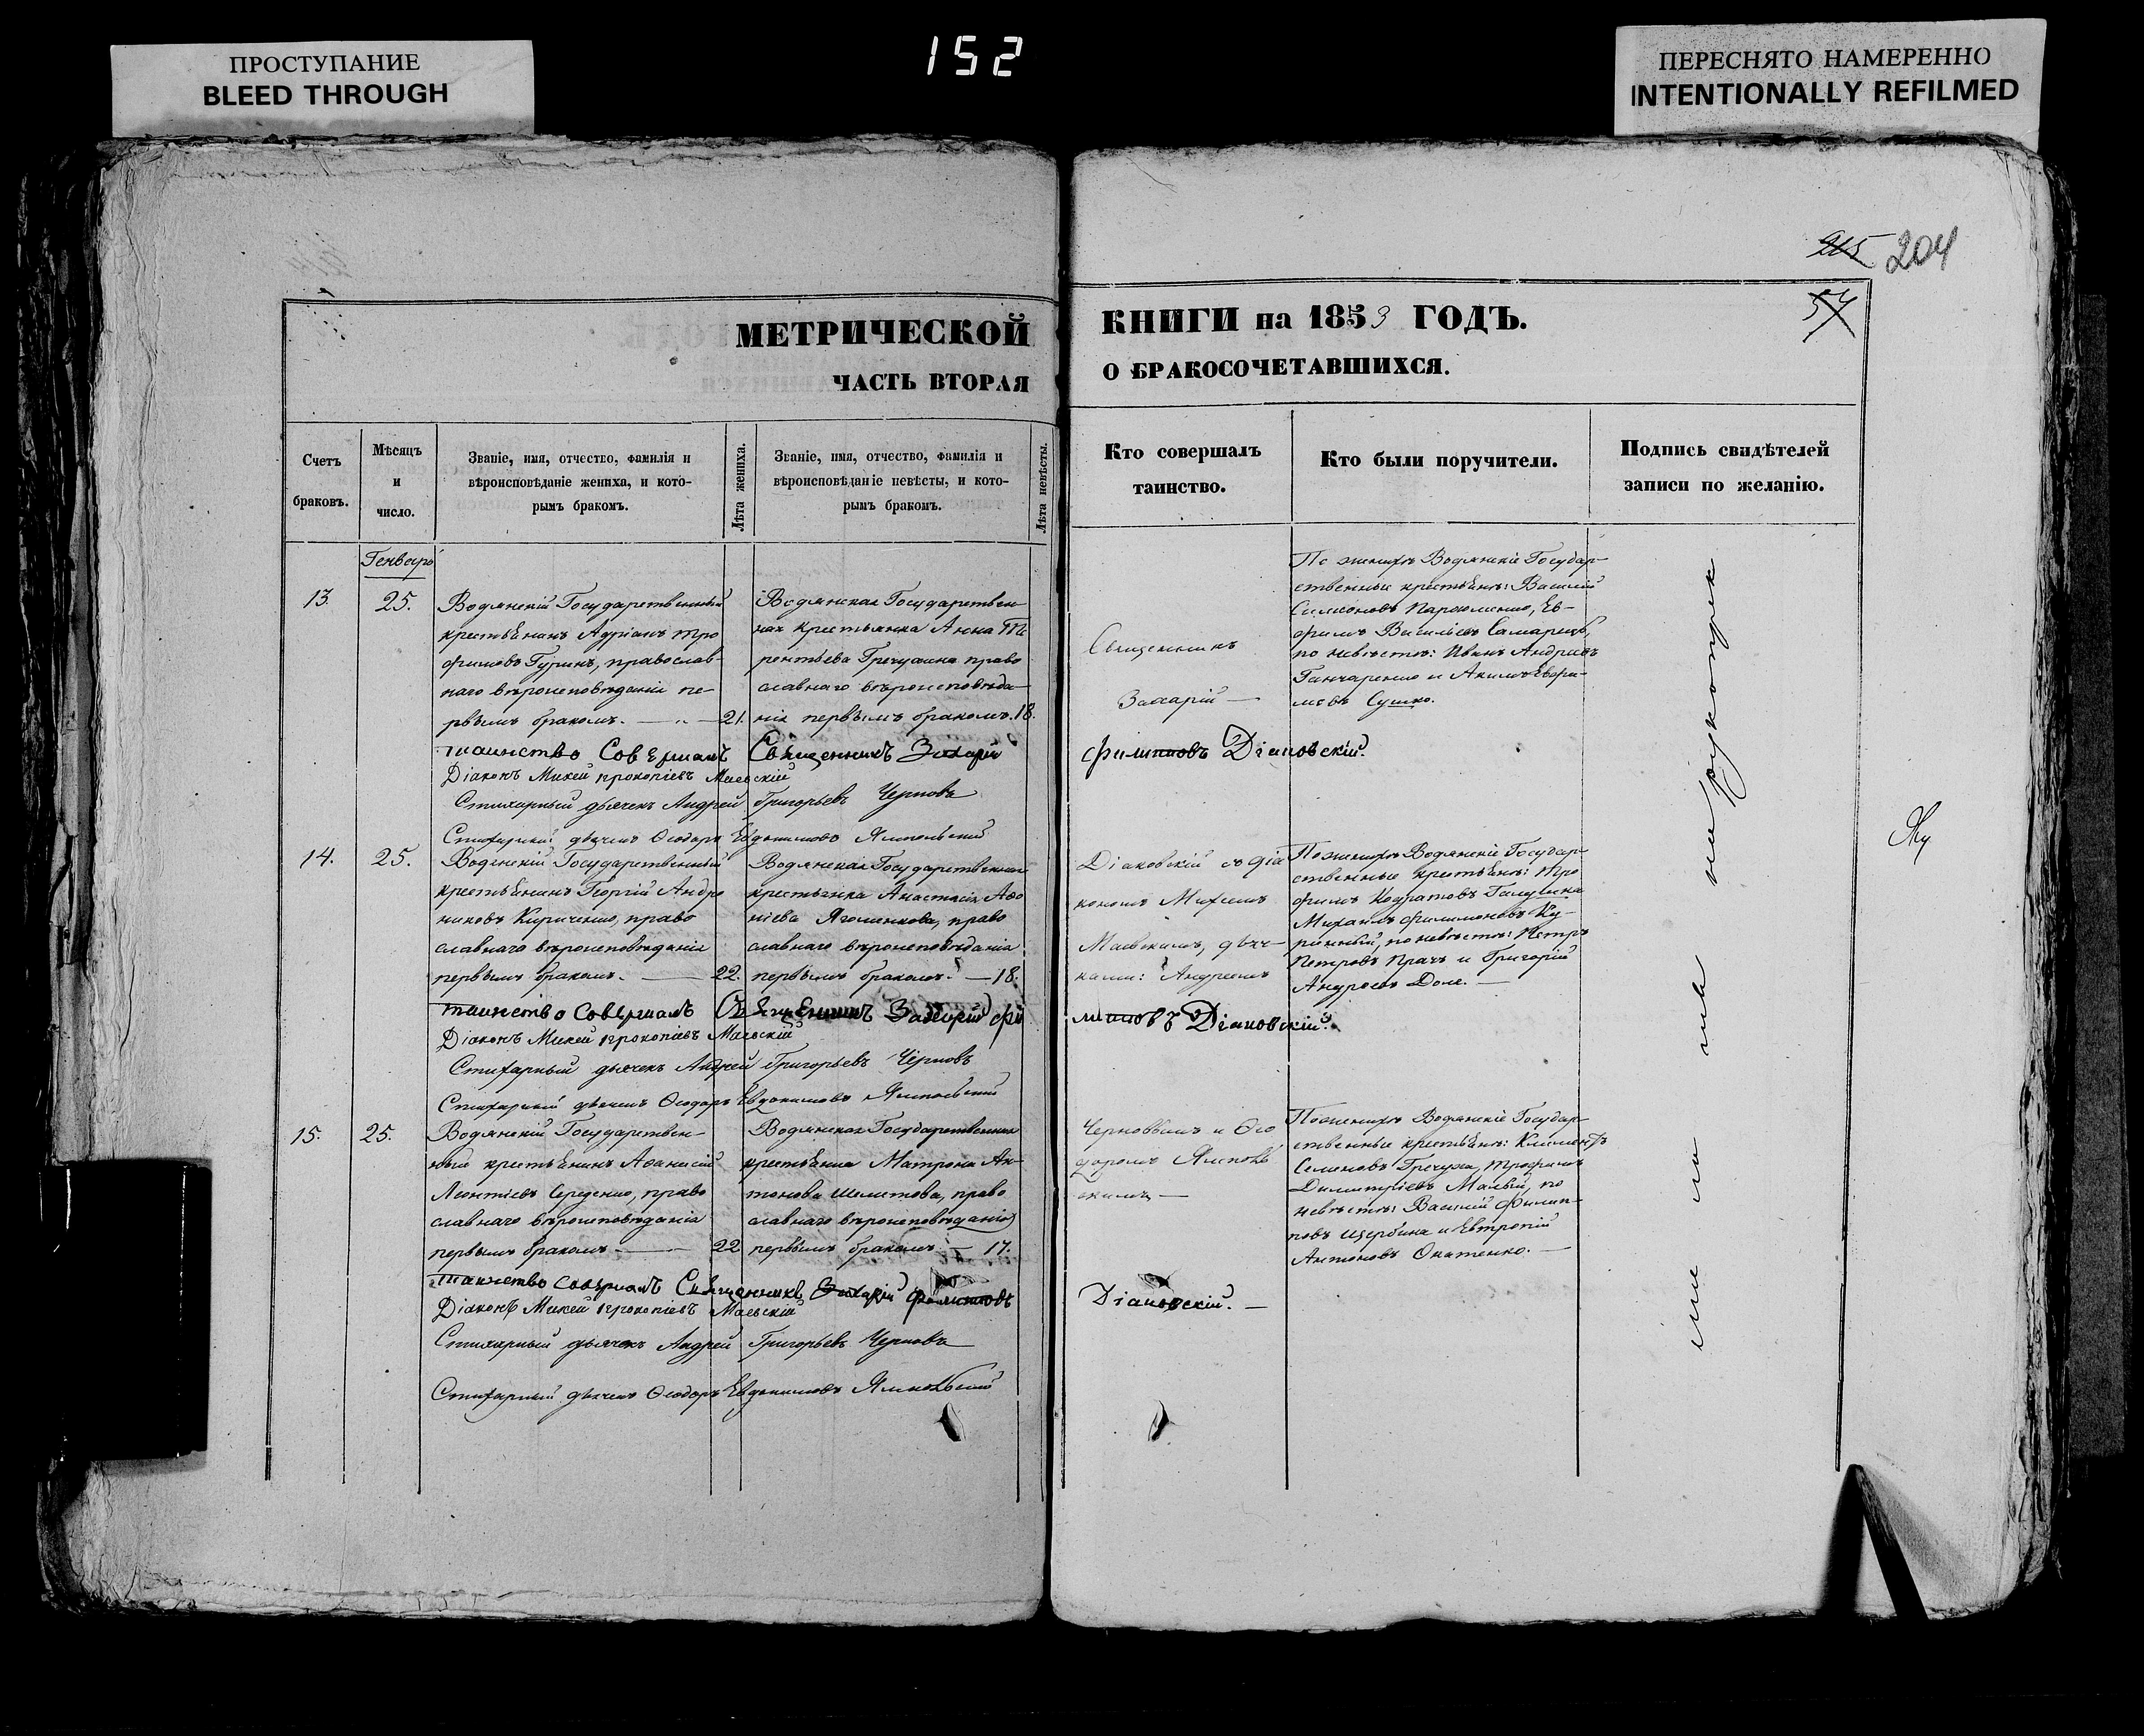 ПРОСТУПАНИЕ
BLEED THROUGH
152
ПЕРЕСНЯТО НАМЕРЕННО
INTENTIONALLY REFILMED
215 204
54
МЕТРИЧЕСКОЙ
ЧАСТЬ ВТОРАЯ
КНИГИ на 1853 ГОДЪ.
О БРАКОСОЧЕТАВШИХСЯ.
Счетъ
браковъ.
Мѣсяцъ
и
число.
Званіе, имя, отчество, фамилія и
вѣроисповѣданіе жениха, и кото-
рымъ бракомъ.
Лѣта жениха.
Званіе, имя, отчество, фамилія и
вѣроисповѣданіе невѣсты, и кото-
рымъ бракомъ.
Лѣта невѣсты.
Кто совершалъ
таинство.
Кто были поручители.
Подпись свидѣтелей
записи по желанію.
Генварь
13.
25.
Водянскій Государственный
крестьянинъ Адріанъ Тро
фимовъ Гуринъ, православ-
наго вѣроисповѣданія пе-
рвымъ бракомъ. — „ — 21.
Водянская Государствен
ная крестьянка Анна Те
рентьева Гречушна право
славнаго вѣроисповѣда-
нія первымъ бракомъ. 18.
Священникъ
Захарій —
По женихѣ Водянскіе Государ-
ственные крестьяне: Василій
Симеоновъ Пархоменко, Ев-
фимъ Васильевъ Самарецъ,
по невѣстѣ: Иванъ Андреевъ
Ганчаренко и Акимъ Евфи-
мовъ Сушко.
таинство Совершалъ Священникъ Захарій филиповъ Діаковскій.
Діаконъ Михей прокопіевъ Маевскій
Стихарный дьячекъ Андрей Григорьевъ Черновъ
Стихарный дьячекъ Ѳеодоръ Евдокимовъ Ямпольскій
14.
25.
Водянскій Государственный
крестьянинъ Георгій Андро
никовъ Кириченко, право
славнаго вѣроисповѣданія
первымъ бракомъ. — 22.
Водянская Государственная
крестьянка Анастасія Аѳо
ніева Ягоменкова, право
славнаго вѣроисповѣданія
первымъ бракомъ. — 18.
Діаковскій съ діа
кономъ Михеемъ
Маевскимъ, дьяч-
ками: Андреемъ
По женихѣ Водянскіе Государ-
ственные крестьяне: Тро
фимъ Кодратовъ Галушка
Михаилъ филимоновъ Ку-
по невѣстѣ: Петръ
Петровъ Прачъ и Григорій
Андреевъ Доле. —
таинство совершалъ Священникъ Захарій филиповъ Діаковскій.
Діаконъ Михей прокопіевъ Маевскій
Стихарный дьячекъ Андрей Григорьевъ Черновъ
Стихарный дьячекъ Ѳеодоръ Евдокимовъ Ямпольскій
15.
25.
Водянскій Государствен-
ный крестьянинъ Аѳанасій
Леонтіевъ Середенко, право
славнаго вѣроисповѣданія
первымъ бракомъ — 22
Водянская Государственная
крестьянка Матрона Ан-
тонова Шелистова, право
славнаго вѣроисповѣданія
первымъ бракомъ — 17.
Черновымъ и Ѳео
доромъ Ямполь
скимъ —
По женихѣ Водянскіе Государ-
ственные крестьяне: Климентъ
Семеновъ Гречуха, Трофимъ
Димитріевъ Малый, по
невѣстѣ: Василій Филип-
повъ Щербина и Евтропій
Антоновъ Окатенко. —
таинство совершалъ Священникъ Захарій филиповъ Діаковскій. —
Діаконъ Михей прокопіевъ Маевскій
Стихарный дьячекъ Андрей Григорьевъ Черновъ
Стихарный дьячекъ Ѳеодоръ Евдокимовъ Ямпольскій